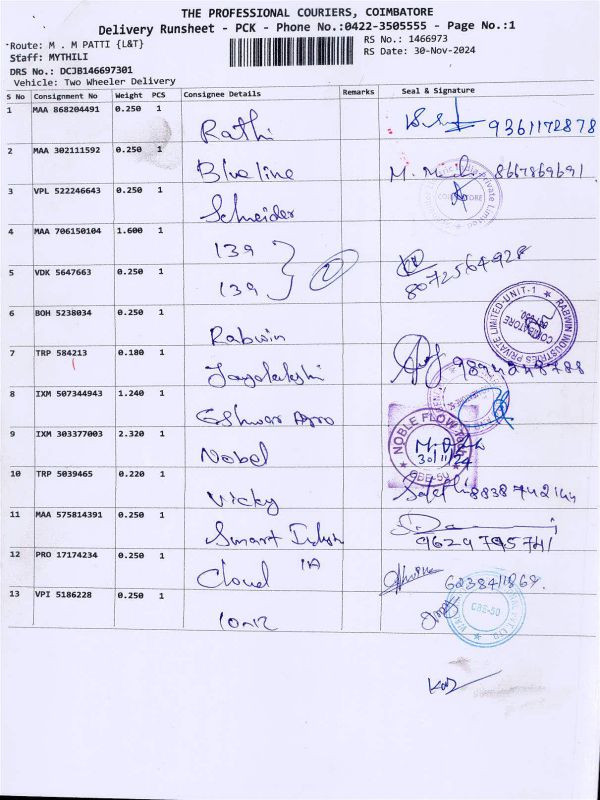 THE PROFESSIONAL COURIERS, COIMBATORE
Delivery Runsheet - PCK - Phone No.:0422-3505555 - Page No.:1
Route: M . M PATTI {L&T}
RS No.: 1466973
Staff: MYTHILI
RS Date: 30-Nov-2024
DRS No.: DCJB146697301
Vehicle: Two Wheeler Delivery
S No Consignment No Weight PCS Consignee Details Remarks Seal & Signature
1 MAA 868204491 0.250 1 Rathi 9361172878
2 MAA 302111592 0.250 1 Blueline 8667869691
3 VPL 522246643 0.250 1 Schneider
COIMBATORE
4 MAA 706150104 1.600 1 139
5 VDK 5647663 0.250 1 139 2 8072564928
6 BOH 5238034 0.250 1 Rabwin
RABWIN INDUSTRIES PRIVATE LIMITED-UNIT-1 COIMBATORE
7 TRP 584213 0.180 1
8 IXM 507344943 1.240 1 Eshwar Agro
9 IXM 303377003 2.320 1 Nobel
NOBLE FLOW CBE-50
30/11/24
10 TRP 5039465 0.220 1 Vicky
11 MAA 575814391 0.250 1 Smart 9629795741
12 PRO 17174234 0.250 1 Cloud
13 VPI 5186228 0.250 1
CBE-50